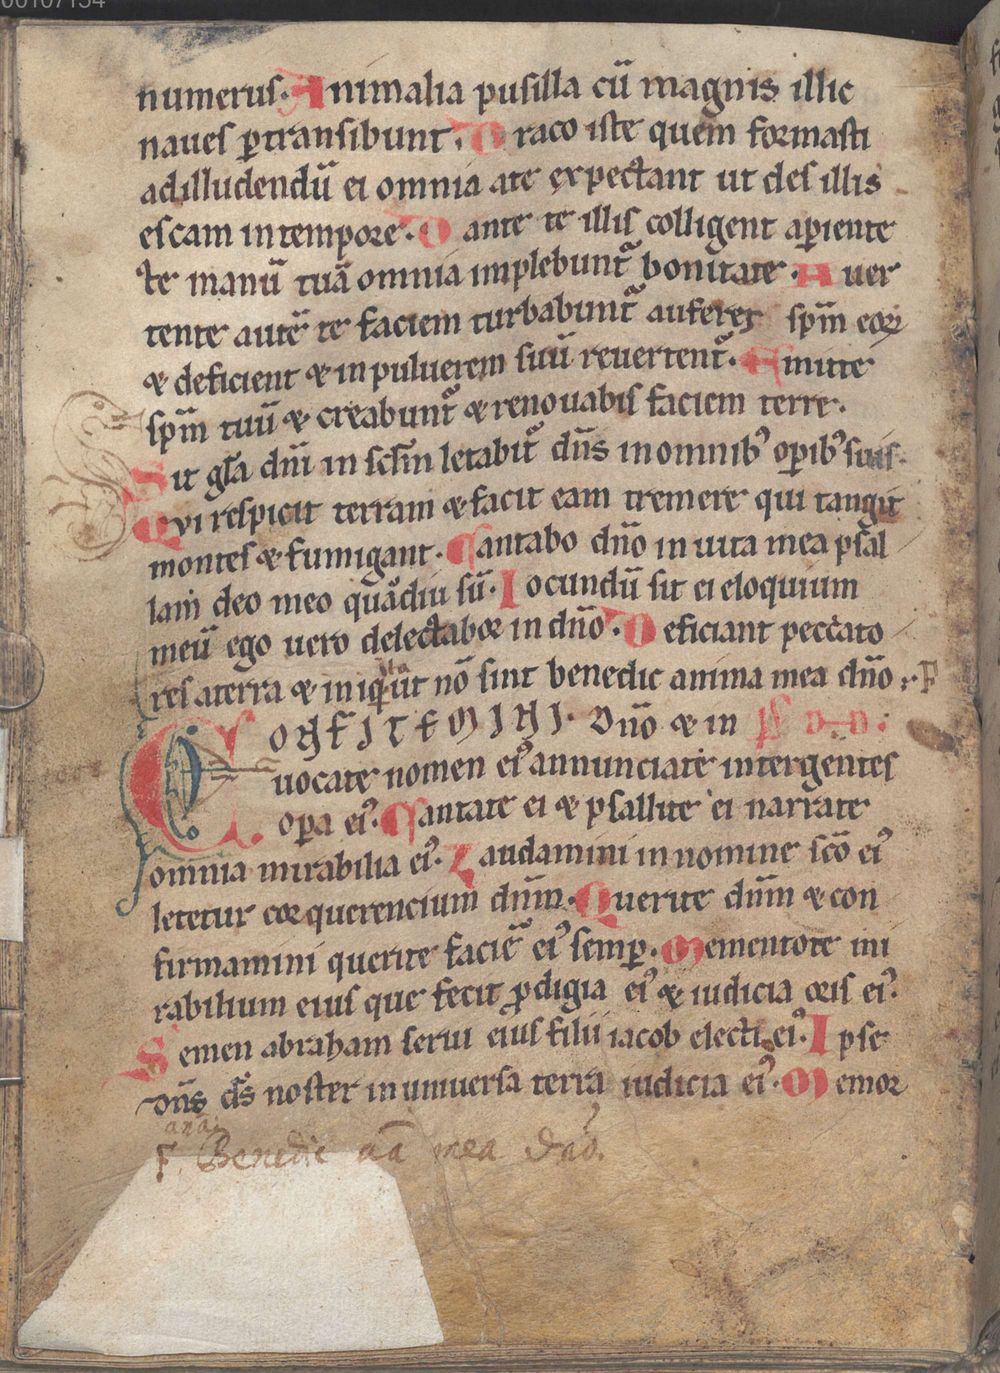 00107154
numerus. Animalia pusilla cū magnis illic
naues ꝑtransibunt. Draco iste quem formasti
adilludendū ei omnia ate expectant ut des illis
escam intempore. Dante te illis colligent aꝑiente
te manū tuā omnia implebunt᷑ bonitate. Auer
tente autē te faciem turbabunt᷑ auferes sp̄m eoꝝ
& deficient & inpuluerem suū reuertent᷑. Emitte
sp̄m tuū & creabunt᷑ & renouabis faciem terre.
Sit gl̄a dn̄i in sc̄lm letabit᷑ dn̄s inomnibꝰ oꝑibꝰ suis.
Qvi respicit terram & facit eam tremere qui tangit
montes & fumigant. Cantabo dn̄o in uita mea psal
lam deo meo quādiu sū. Iocundū sit ei eloquium
meū ego uero delectabor in dn̄o. Deficiant peccato
res aterra & iniqui ita ut nō sint benedic anima mea dn̄o
CONFITEMINI. Dn̄o & in
uocate nomen eiꝰ annunciate intergentes
oꝑa eiꝰ. Cantate ei & psallite ei narrate
omnia mirabilia eiꝰ. Laudamini in nomine scō eiꝰ
letetur cor querencium dn̄m. Querite dn̄m & con
firmamini querite faciē eiꝰ semꝑ. Mementote mi
rabilium eius que fecit ꝓdigia eiꝰ & iudicia oris eiꝰ.
Semen abraham serui eius filii iacob electi eiꝰ. Ipse
dn̄s ds̄ noster in uniuersa terra iudicia eiꝰ. Memor
ana
F. Benedic aā mea dn̄o.